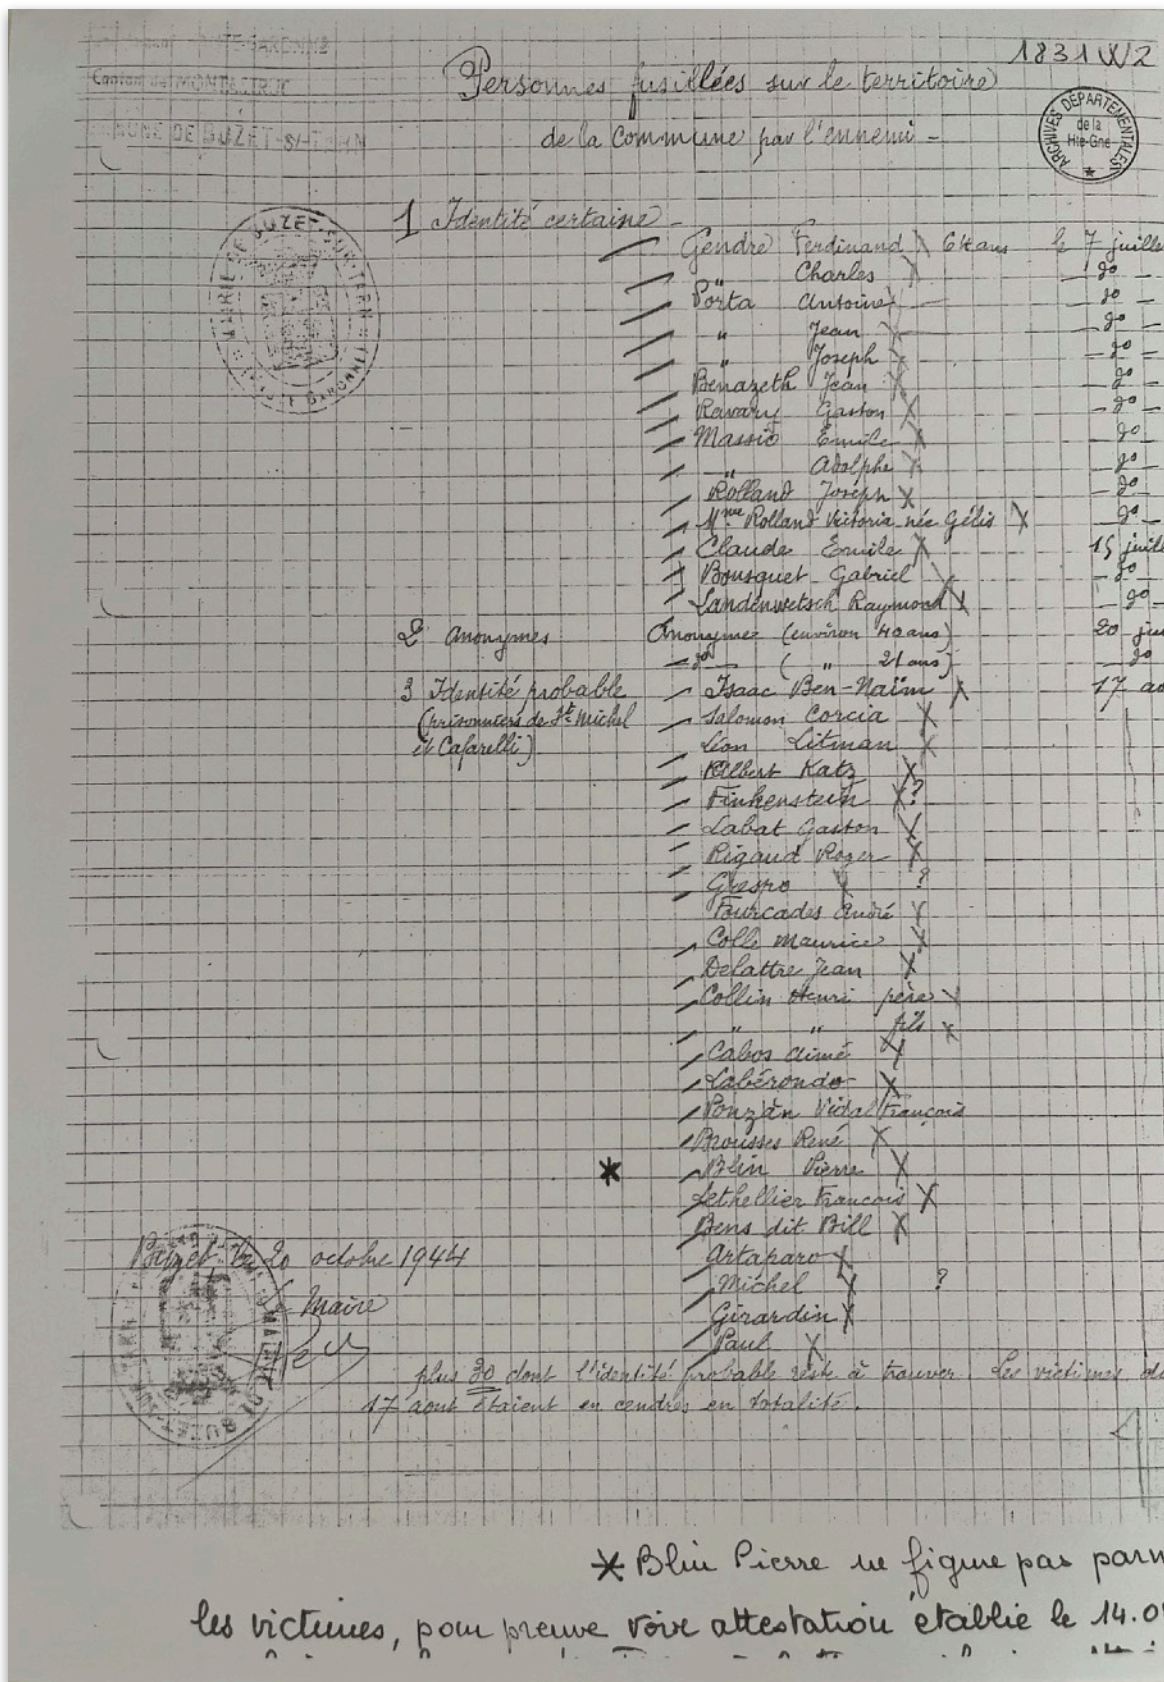 HAUTE-GARONNE
Canton de MONTASTRUC
COMMUNE DE BUZET-S/-TARN
1831 W2
Personnes fusillées sur le territoire
de la Commune par l'ennemi -
ARCHIVES DÉPARTEMENTALES de la Hte-Gne
MAIRIE DE BUZET-SUR-TARN
1 Identité certaine -
Gendre Ferdinand 64 ans le 7 juille
" Charles - do -
Porta Antoine - do -
" Jean - do -
" Joseph - do -
Benazeth Jean - do -
Ravary Gaston X - do -
Massio Emile - do -
" Adolphe - do -
Rolland Joseph X - do -
Mme Rolland Victoria née Gélis X - do -
Claude Emile X 15 juill
Bousquet Gabriel - do -
Landenwetsch Raymond X - do -
2 Anonymes Anonymes (environ 40 ans) 20 jui
- do - ( " 21 ans) - do
3 Identité probable Isaac Ben-Naïm X 17 ao
(prisonniers de St Michel Salomon Corcia X
et Cafarelli) Léon Litman X
Albert Katz X
Finkenstein X ?
Labat Gaston X
Rigaud Roger X
Grespo X ?
Fourcades André X
Colle Maurice X
Delattre Jean X
Collin Henri père X
" " fils X
Cabos Aimé X
Labérondo X
Ponzàn Vidal François
Brousses René X
* Blin Pierre X
Lethellier François X
Bens dit Bill X
Artaparo X
Michel X ?
Girardin X
Paul X
Buzet, le 20 octobre 1944
Le Maire
plus 30 dont l'identité probable reste à trouver. Les victimes du
17 aout étaient en cendres en totalité.
* Blin Pierre ne figure pas parm
les victimes, pour preuve voir attestation établie le 14.0